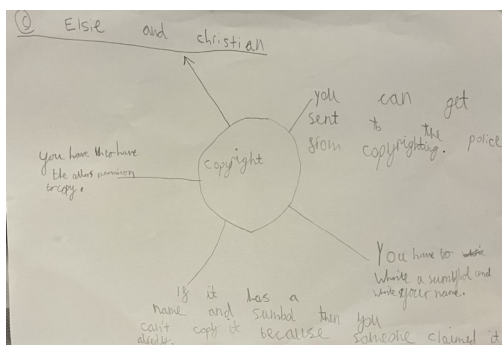 © Elsie and christian
copyright
you can get
sent to the police
from copyrighting.
you have to have
the allors permission
to copy.
You have to
Whrite a sumbld and
write your name.
If it has a
name and sumbl then you
can't copy it because someone claimed it